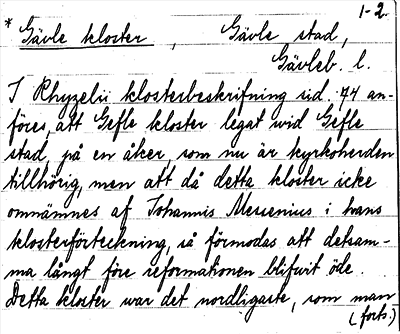 1-2.
* Gävle kloster, Gävle stad,
Gävleb. l.
I Rhyzelii klosterbeskrifning sid. 74 an-
föres, att Gefle kloster legat wid Gefle
stad, på en åker, som nu är kyrkoherden
tillhörig, men att då detta kloster icke
omnämnes af Johannis Messenius i hans
klosterförteckning, så förmodas att detsam-
ma långt före reformationen blifvit öde.
Detta kloster war det nordligaste, som man
(forts.)